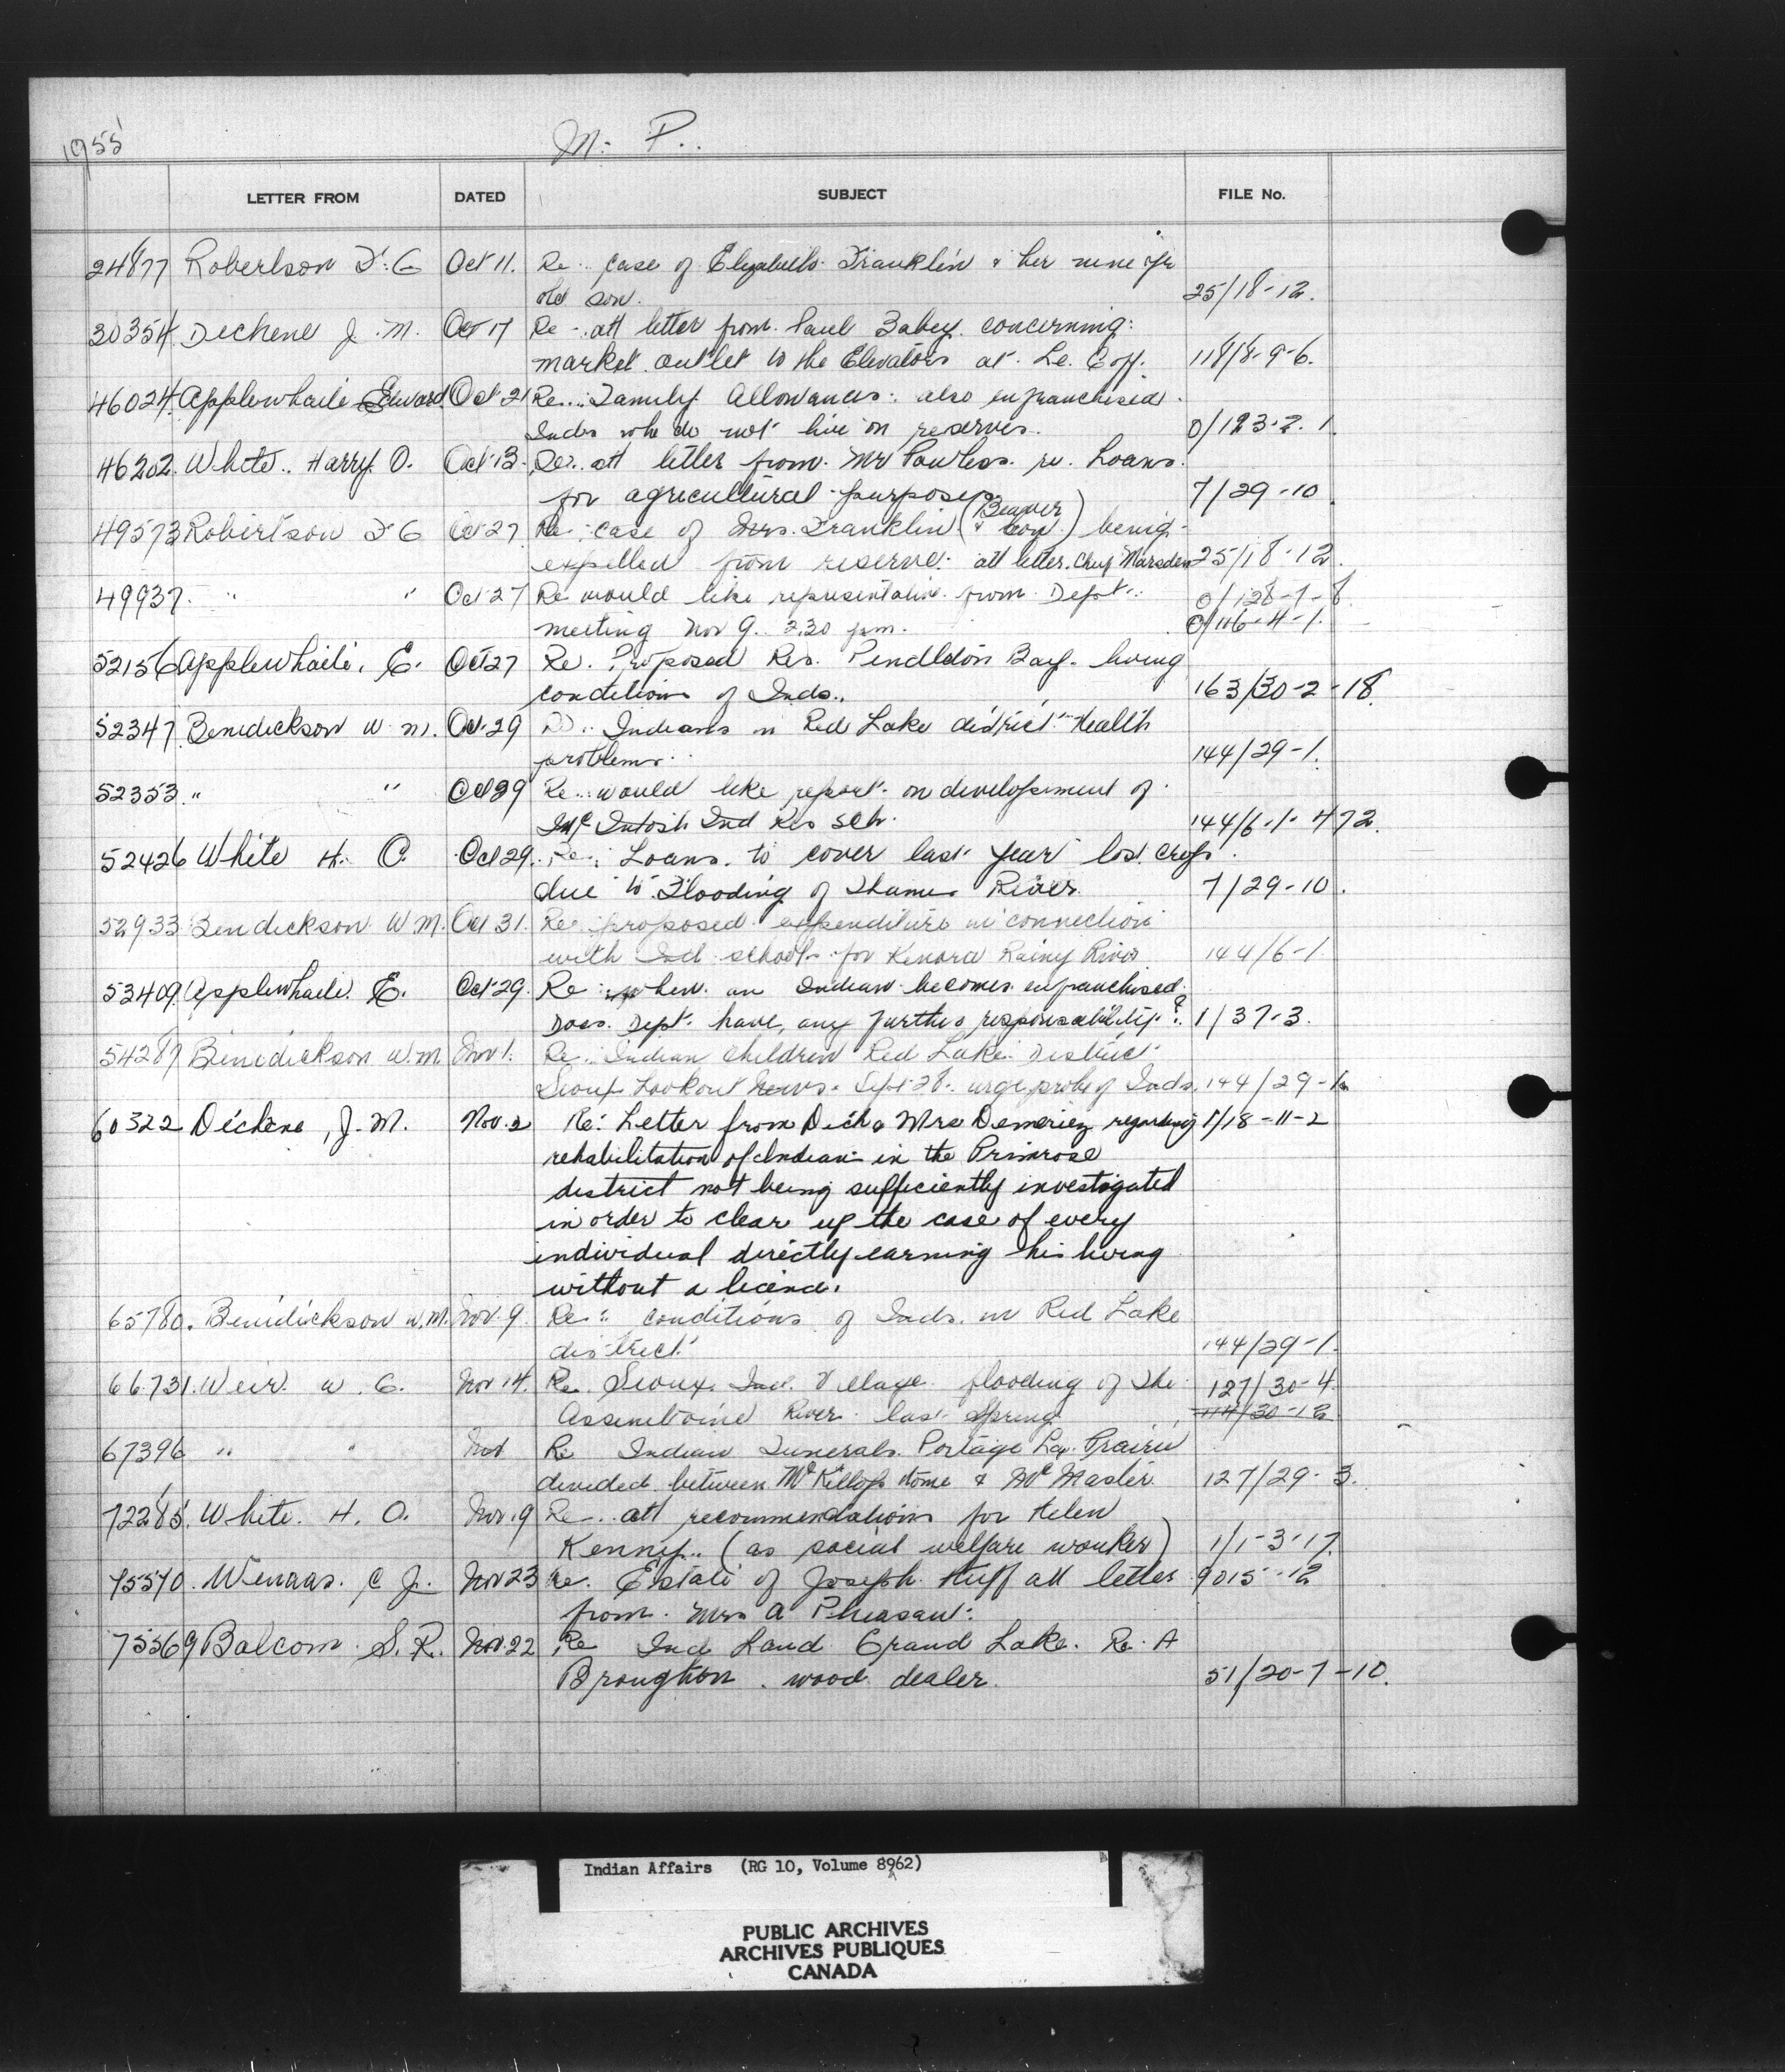 1955
M. P.
LETTER FROM DATED SUBJECT FILE No.
24877 Robertson F. G Oct 11. Re. case of Elizabeth Franklin & her nine yr
old son. 25/18-12.
30354 Dechene J. M. Oct 17 Re - att letter from Paul concerning
market outlet to the Elevators at Le Goff. 118/18-9-6.
46024 Applewhaite Edward Oct 21 Re... Family Allowances: also enfranchised
Inds who do not live on reserves. 0/123-2.1
46202. White. Harry O. Oct 13. Re. att letter from Mr Powless re. Loans.
for agricultural purposes 7/29-10
49573 Robertson F G Oct 27 Re: case of Mrs. Franklin (Beaver & boy) being
expelled from reserve: att letter. Chief Marsden 25/18-12.
49937. " " Oct 27 Re would like representative from Dept..
0/128-1-8
meeting Nov 9. 2.30 pm. 0/116-4-1.
52156 Applewhaite, E. Oct 27 Re. Proposed Res. Pendleton Bay. living
conditions of Inds.. 163/30-2-18.
52347. Benidickson W. M. Oct. 29 Re.. Indians in Red Lake district Health
problems. 144/29-1.
52353 " " Oct 29 Re.. would like report on development of
McIntosh Ind Res Sch. 144/6-1-472.
52426 White H. O. Oct 29. Re: Loans to cover last year lost crops.
due to Flooding of Thames River. 7/29-10.
52933 Bendickson W M. Oct 31. Re proposed expenditure in connection
with Ind schools for Kenora Rainy River 144/6-1
53409 Applewhaite. E. Oct 29. Re when an Indian becomes enfranchised.
Does Dept. have any further responsibility?. 1/37-3.
54287 Benidickson W M Nov 1. Re.. Indian Children Red Lake District
Sioux Lookout News. Sept 28. urge probe of Inds. 144/29-1.
60322 Dechene, J. M. Nov. 2 Re: Letter from Dick & Mrs regarding 1/18-11-2
rehabilitation of Indians in the Primrose
district not being sufficiently investigated
in order to clear up the case of every
individual directly earning his living
without a licence.
65780. Benidickson W. M. Nov. 9 Re: conditions of Inds. in Red Lake
district 144/29-1.
66731. Weir. W. G. Nov 14. Re. Sioux. Ind. Village flooding of the 127/30-4.
Assiniboine River last Spring. 114/30-12
67396 " " Nov Re Indian Funerals. Portage La Prairie
divided between McKillops Home & McMaster. 127/29-3.
72285. White. H. O. Nov. 9 Re.. att recommendations for Helen
Kenny.. (as social welfare worker) 1/1-3-17.
75570. Wenaas. C J. Nov 23 Re. Estate of Joseph att letter 9015-12
from. Mrs A Pheasant.
75569 Balcom. S. R. Nov. 22 Re Ind Land Grand Lake. Re. A
Broughton. wood dealer. 51/20-7-10.
Indian Affairs (RG 10, Volume 8962)
PUBLIC ARCHIVES
ARCHIVES PUBLIQUES
CANADA